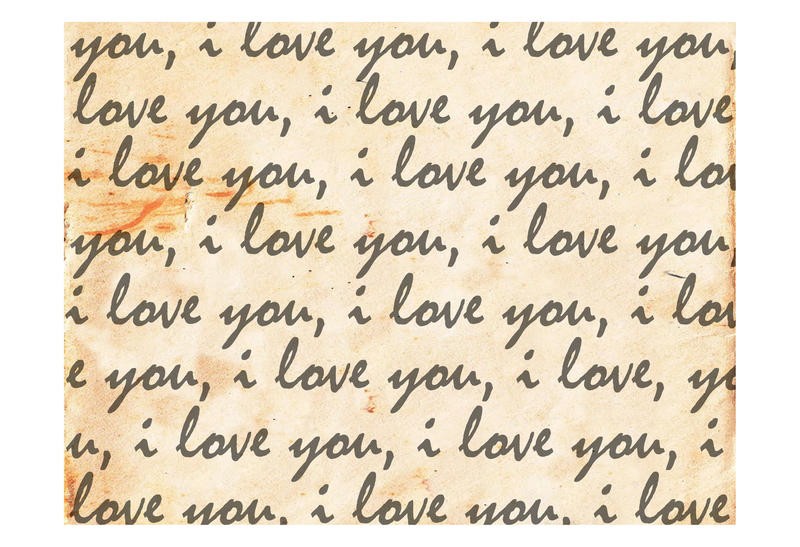 you, i love you, i love you,
love you, i love you, i love
i love you, i love you, i lov
you, i love you, i love you,
i love you, i love you, i lov
e you, i love you, i love, yo
u, i love you, i love you, i
love you, i love you, i love